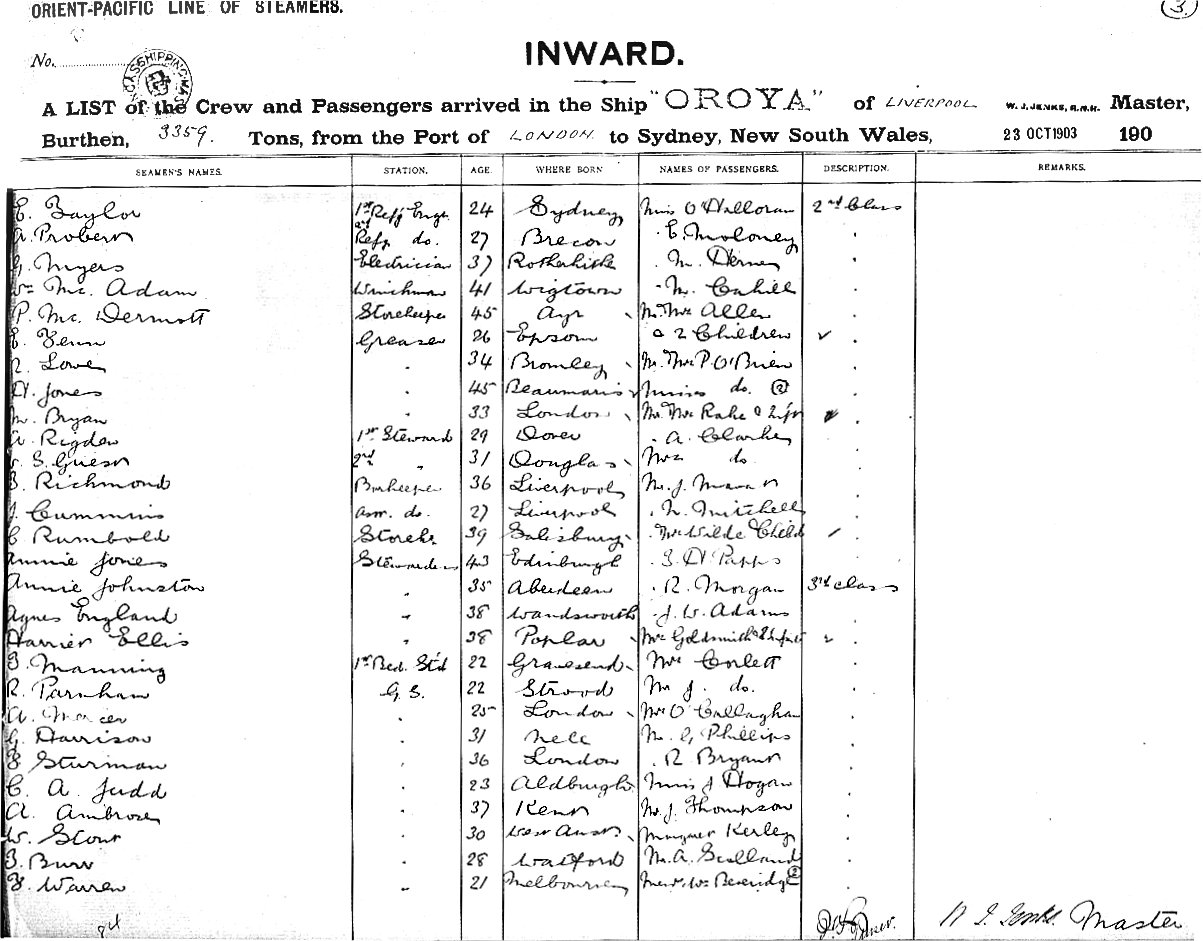 ORIENT-PACIFIC LINE OF STEAMERS. 3.
No.
INWARD.
A LIST of the Crew and Passengers arrived in the Ship "OROYA" of LIVERPOOL W. J. JENKS, R.N.R. Master,
Burthen, 3359. Tons, from the Port of LONDON to Sydney, New South Wales, 23 OCT 1903 190
SEAMEN'S NAMES. STATION. AGE. WHERE BORN NAMES OF PASSENGERS. DESCRIPTION. REMARKS.
E. Baylor 1st Refg Engr 24 Sydney Miss O'Halloran 2nd Class
A. Probert 2nd Refg do. 27 Brecon E. Moloney
G. Myers Electrician 37 Rotherhithe M.
Wm Mc. Adam Winchman 41 Wigtown M. Cahill
P. Mc. Dermott Storekeeper 45 Ayr Mr. Mrs Allen
E. Fenn Greaser 26 Epsom & 2 Children
R. Lowe 34 Bromley Mr. Mrs P. O'Brien
H. Jones 45 Beaumaris Misses do. 2
M. Bryan 33 London Mr. Mrs Rake & Inft
A. Rigden 1st Steward 29 Dover A. Clarke
S. Guest 2nd " 31 Douglas Mrs do.
Richmond Barkeeper 36 Liverpool Mr. J.
J. Cummins Asst. do. 27 Liverpool N. Mitchell
C. Rumbold Storekr 39 Salisbury Mrs Wilde Child
Annie Jones Stewardess 43 Edinburgh Papps
Annie Johnston " 35 Aberdeen R. Morgan 3rd class
Agnes England " 38 Wandsworth J. W. Adams
Harriet Ellis " 38 Poplar Mrs Goldsmith & Infant
Manning 1st Bed. Std 22 Gravesend Mrs Corlett
R. Parnham G. S. 22 Strood Mr J. do.
A. Mercer 25 London Mrs O'Callaghan
G. Harrison 31 Mr. G. Phillips
F. Sturman 36 London R. Bryant
C. A. Judd 23 Aldburgh Miss J Hogan
A. Ambrose 37 Kent Mr. J. Thompson
W. Stout 30 West Aust. Margaret Kerley
Burr 28 Watford Mr. A.
F. Warren " 21 Melbourne Wm Beveridge 2
84 Master